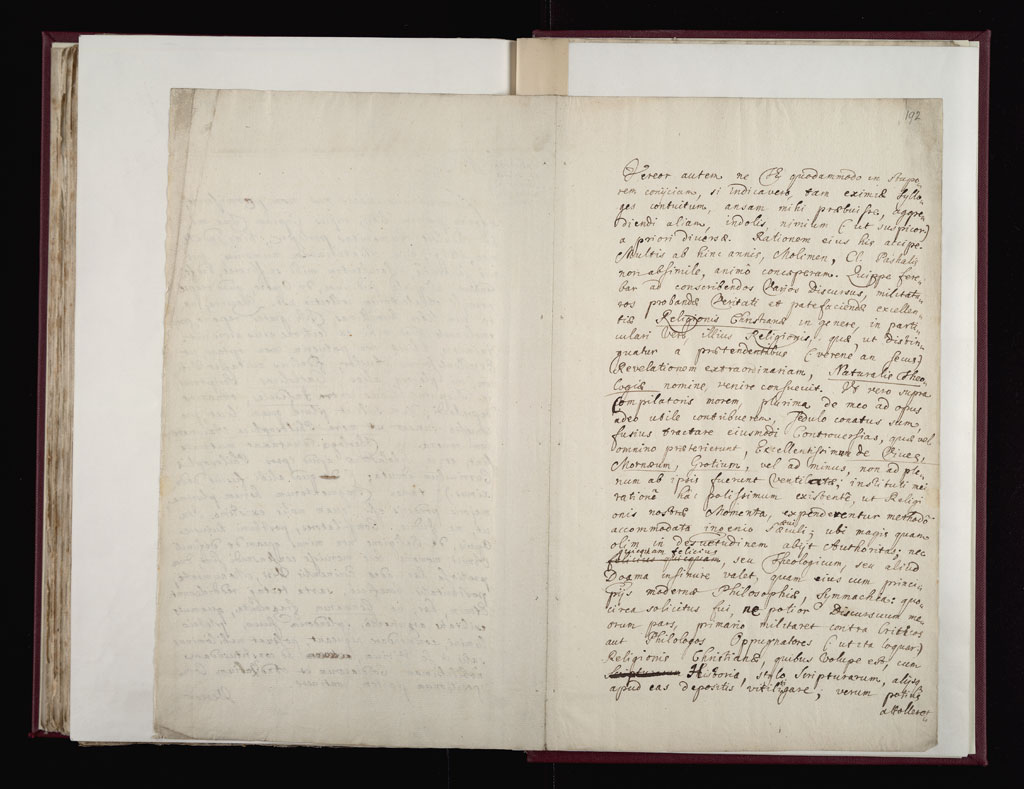 192
Vereor autem ne Te quodammodo in stupo-
rem conijciam, si indicavero, tam eximiæ Syllo-
ges contuitum, ansam mihi præbuisse, aggre-
diendi aliam, indolis, nimium (ut suspicor)
a priori diversæ. Rationem eius hic accipe.
Multis ab hinc annis, Molimen, Cl. Paskalij
non absimile, animo conceperam. Quippe fere-
bar ad conscribendos Varios Discursus, militatu-
ros probandæ Veritati et patefaciendæ excellen-
tiæ Religionis Christianæ in genere, in parti-
culari vero, illius Religionis, quæ, ut distin-
guatur a prætendentibus (verene an secus)
Revelationem extraordinariam, Naturalis Theo-
logiæ nomine, venire consuevit. Ut vero supra
Compilatoris morem, plurima de meo ad opus
adeo utile contribuerem, sedulo conatus sum,
fusius tractare eiusmodi Controversias, quæ vel
omnino præterierunt, Excellentissimum de Vives,
Mornæum, Grotium, vel ad minus, non ad ple-
num ab ipsis fuerunt ventilatæ; instituti mei
ratione hac potissimum existente, ut Religi-
onis nostræ Momenta, expenderentur methodo
accommodata ingenio Sæculi; ubi magis quam
olim in desuetudinem abijt Authoritas; nec
quicquam felicius
felicius quicquam, seu Theologicum, seu aliud
Dogma insinuare valet, quam eius cum princi-
pijs modernæ Philosophiæ, Symmachia: quo-
circa solicitus fui, ne potior Discursuum me-
orum pars, primario militaret contra Criticos
aut Philologos Oppugnatores (ut ita loquar)
Religionis Christianæ, quibus volupe est, cum
Scripturarum Historia, stylo Scripturarum, alijsq
apud eas depositis vitiligare; verum potius
attollere